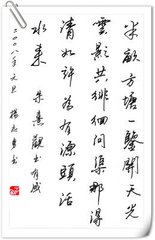 半畝方塘一鑒開天光
雲影共徘徊問渠那得
清如許為有源頭活
水來 朱熹觀書有感
二〇〇八年元旦 楊書